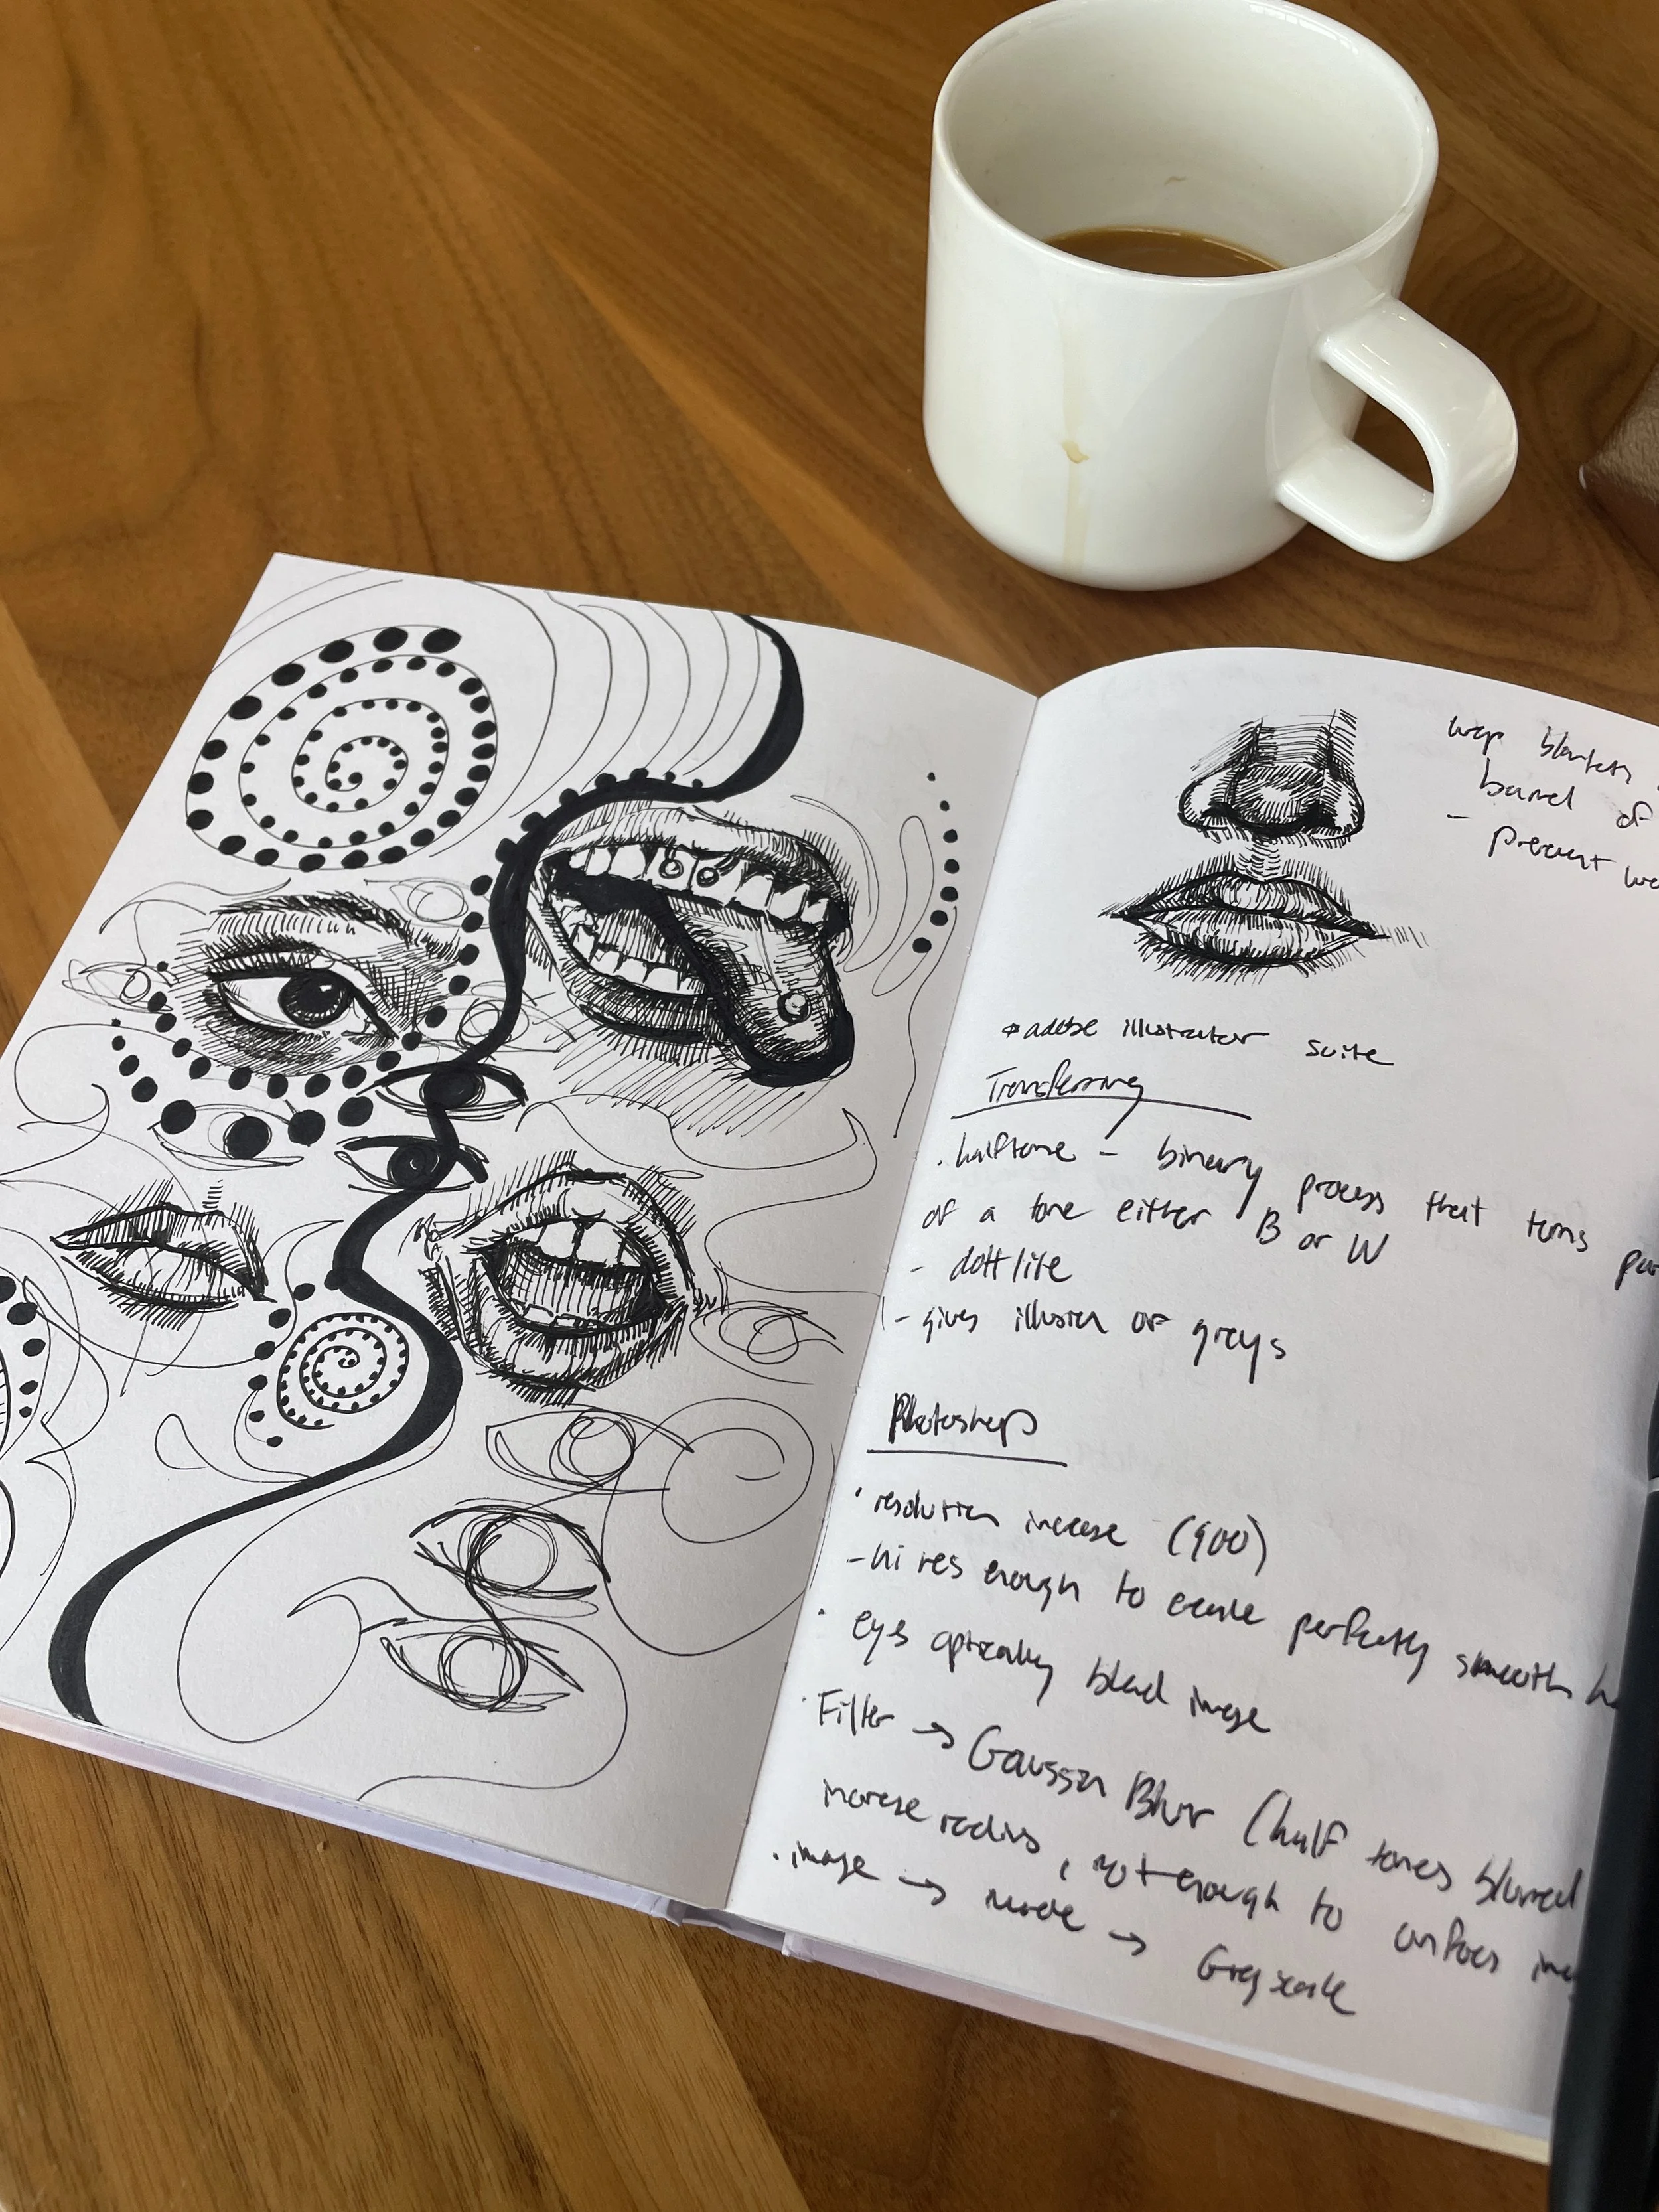 wrap blankets
barrel of
- prevent
* adobe illustrator suite
Transferring
. halftone - binary process that turns
of a tone either B or W
- dott like
- gives illusion of grays
Photoshop
• resolution increase (900)
- hi res enough to create perfectly smooth
• eyes optically blend image
• Filter → Gaussian Blur (half tones blurred
increase radius, not enough to
• image → mode → Greyscale